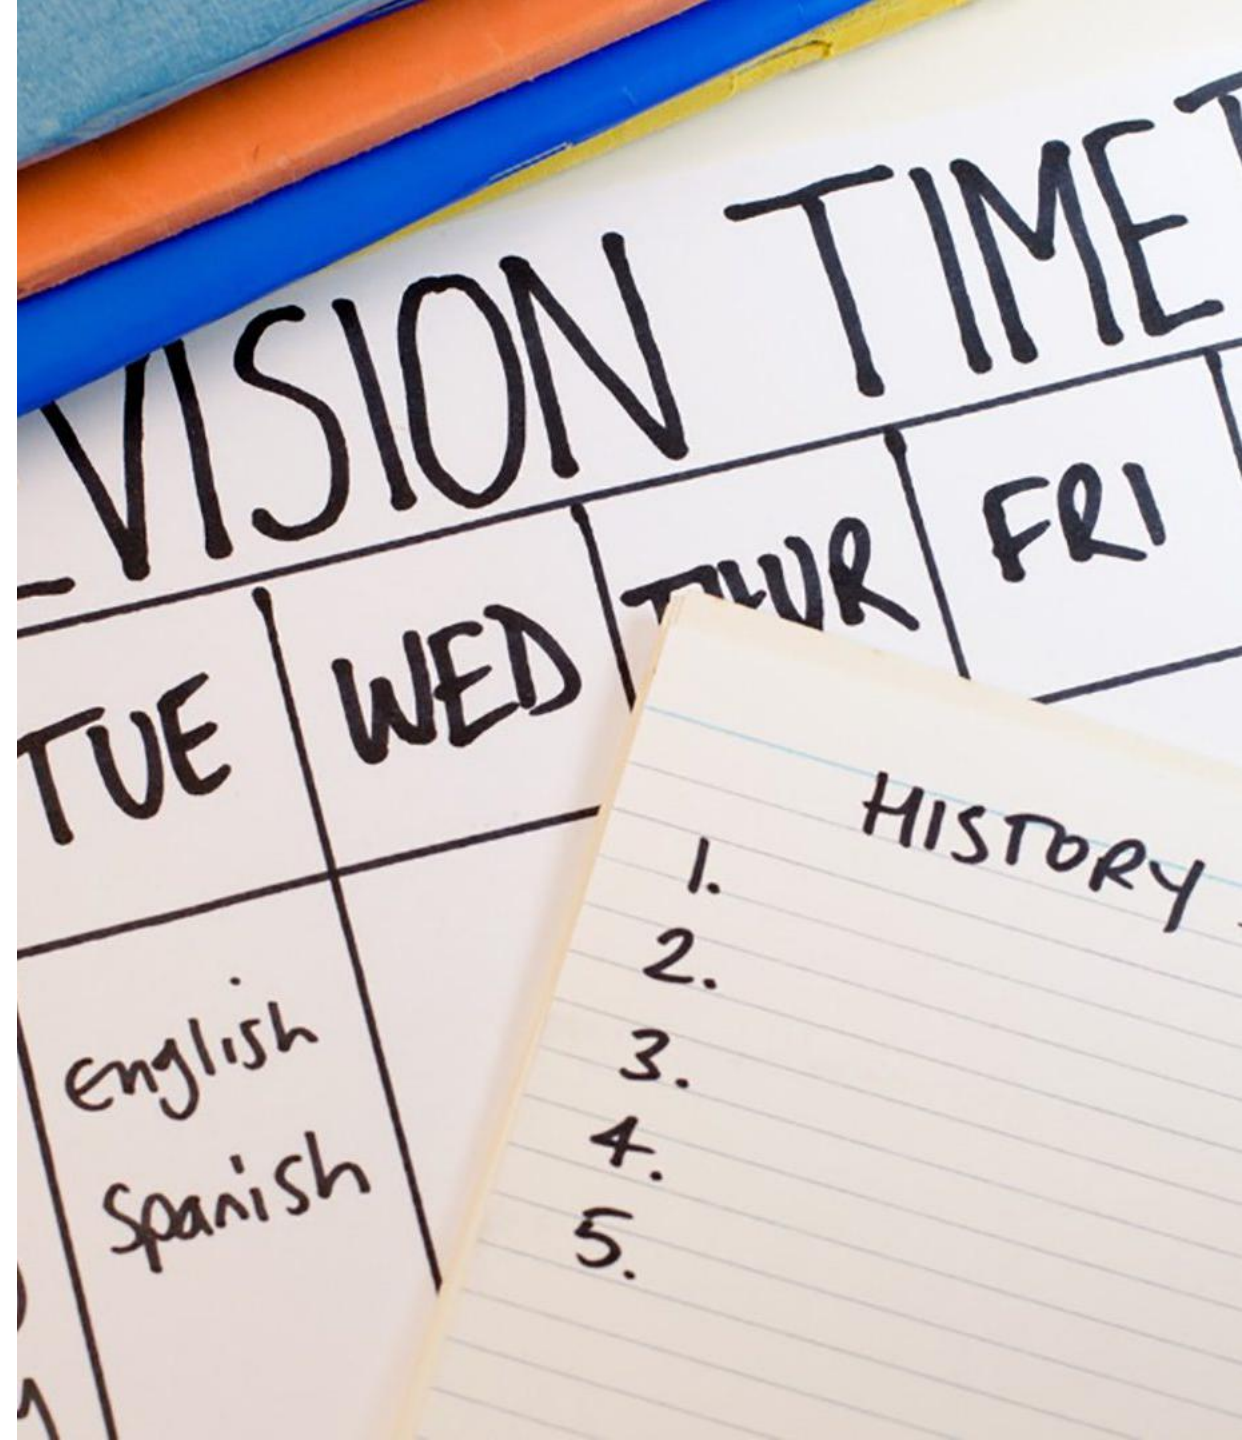 EVISION TIMET
TUE WED THUR FRI
English
Spanish
HISTORY
1.
2.
3.
4.
5.